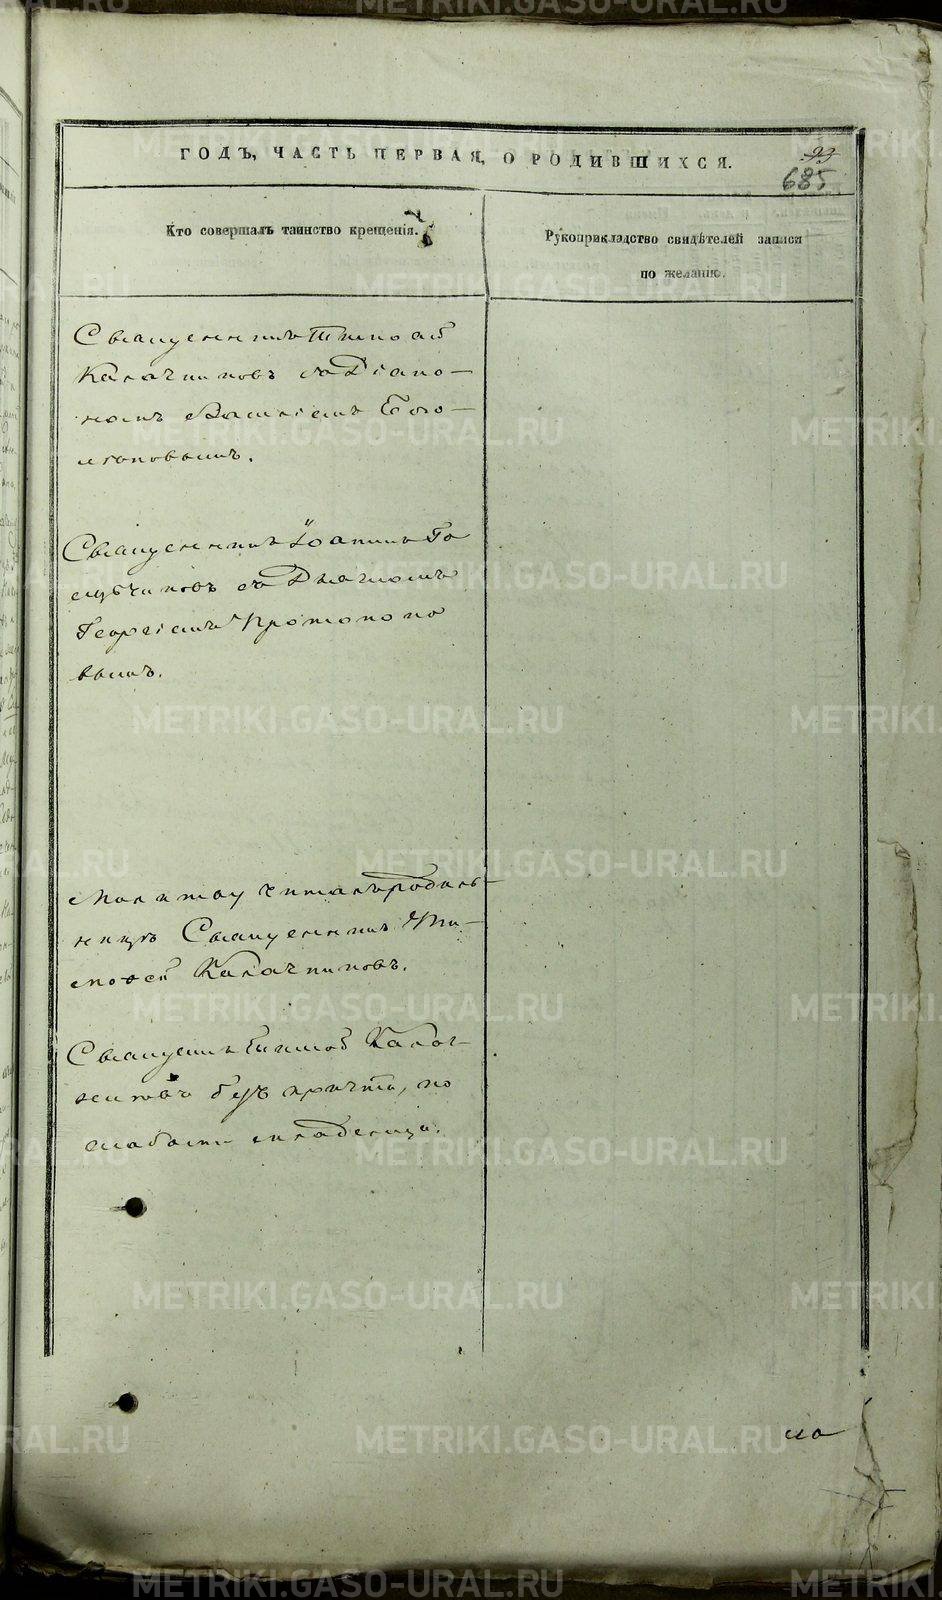 ГОДЪ, ЧАСТЬ ПЕРВАЯ, О РОДИВШИХСЯ.
93
685
Кто совершалъ таинство крещенія.
Рукоприкладство свидѣтелей записи
по желанію.
Священникъ Тимоѳей
Калачниковъ съ Діако-
номъ Василіемъ Бого-
молоповымъ.
Священникъ Іоаннъ Го
съ Дьячкомъ
Георгіемъ Протопопо
вымъ.
Молитву читалъ родиль-
ницѣ Священникъ Ти-
моѳей Калачниковъ.
Священникъ Калач-
никовъ безъ причта, по
слабости младенца.
METRIKI.GASO-URAL.RU